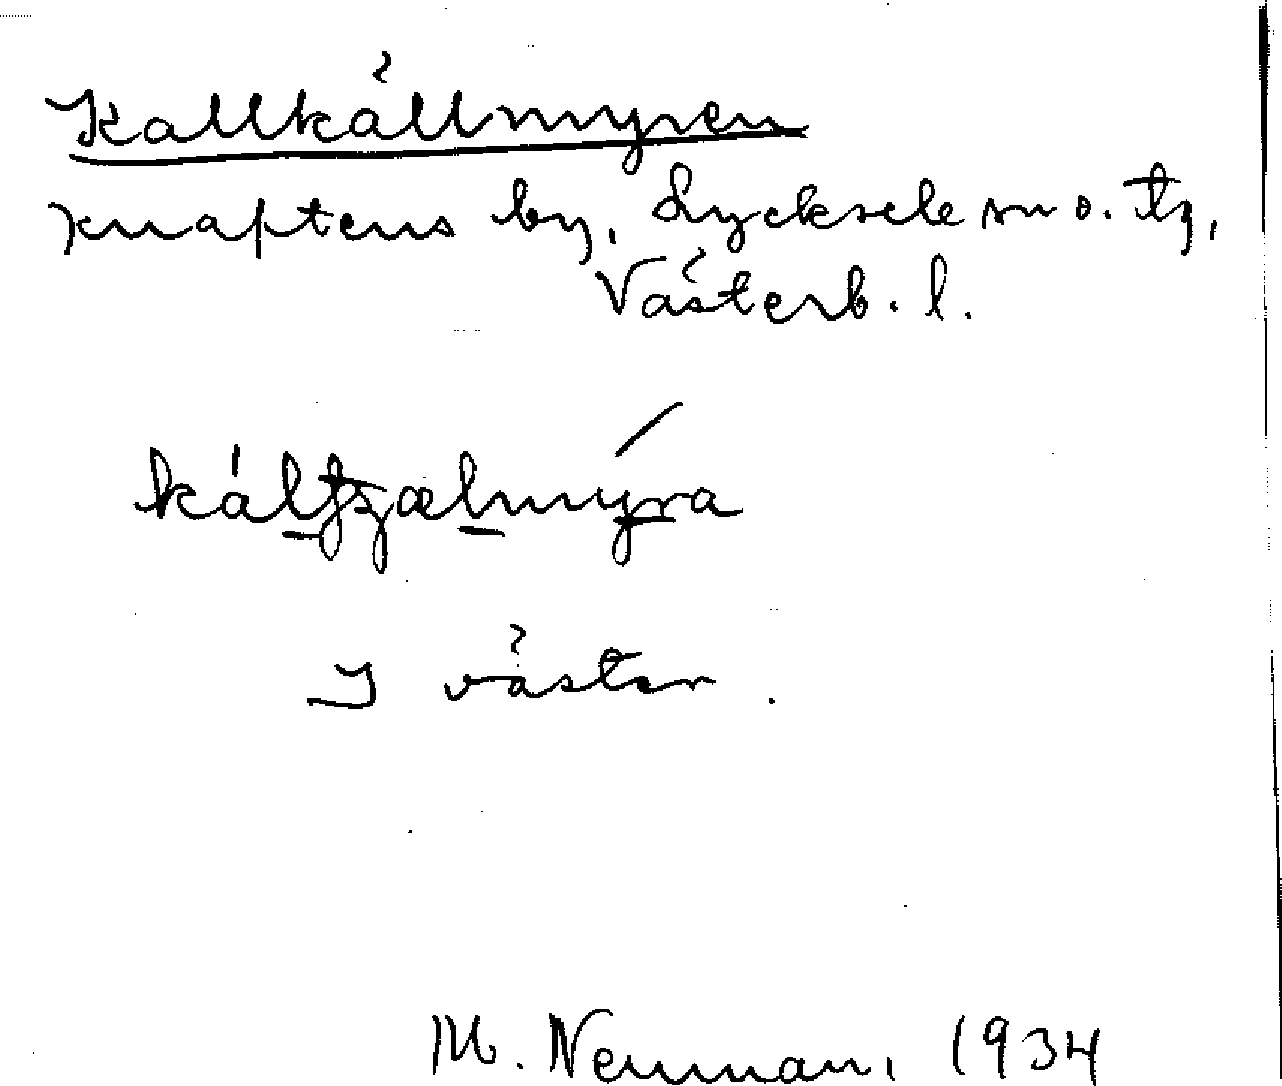 Kallkällmyren
Knaptens by, Lycksele sn o. tg,
Västerb. l.
I väster.
M. Neuman, 1934